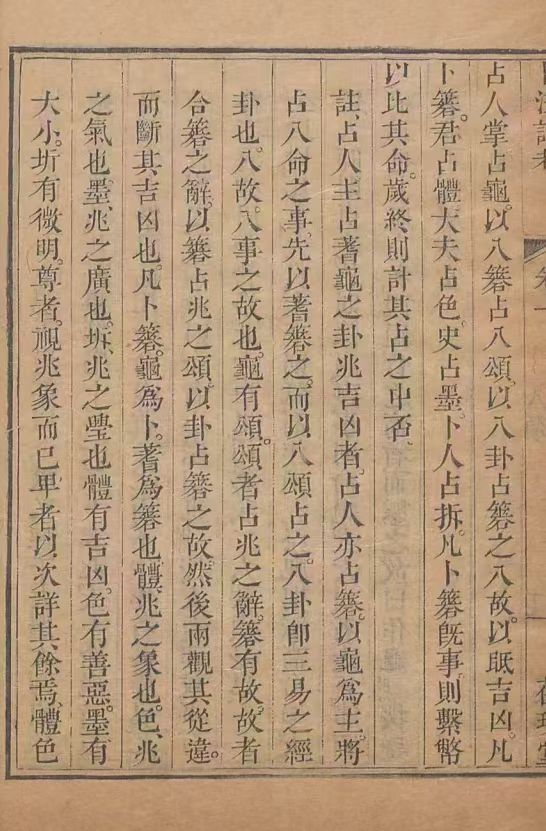 占人掌占龜。以八簭占八頌。以八卦占簭之八故。以眡吉凶。凡
卜簭。君占體。大夫占色。史占墨。卜人占拆。凡卜簭旣事。則繫幣
以比其命。歲終則計其占之中否。
註、占人主占蓍龜之卦兆吉凶者。占人亦占簭。以龜爲主。將
占八命之事。先以蓍簭之。而以八頌占之。八卦卽三易之經
卦也。八故。八事之故也。龜有頌。頌者占兆之辭。簭有故。故者
合簭之辭。以簭占兆之頌。以卦占簭之故。然後兩觀其從違。
而斷其吉凶也。凡卜簭。龜爲卜。蓍爲簭也。體、兆之象也。色、兆
之氣也。墨、兆之廣也。坼、兆之璺也。體有吉凶。色有善惡。墨有
大小。坼有微明。尊者。視兆象而已。卑者以次詳其餘焉。體色